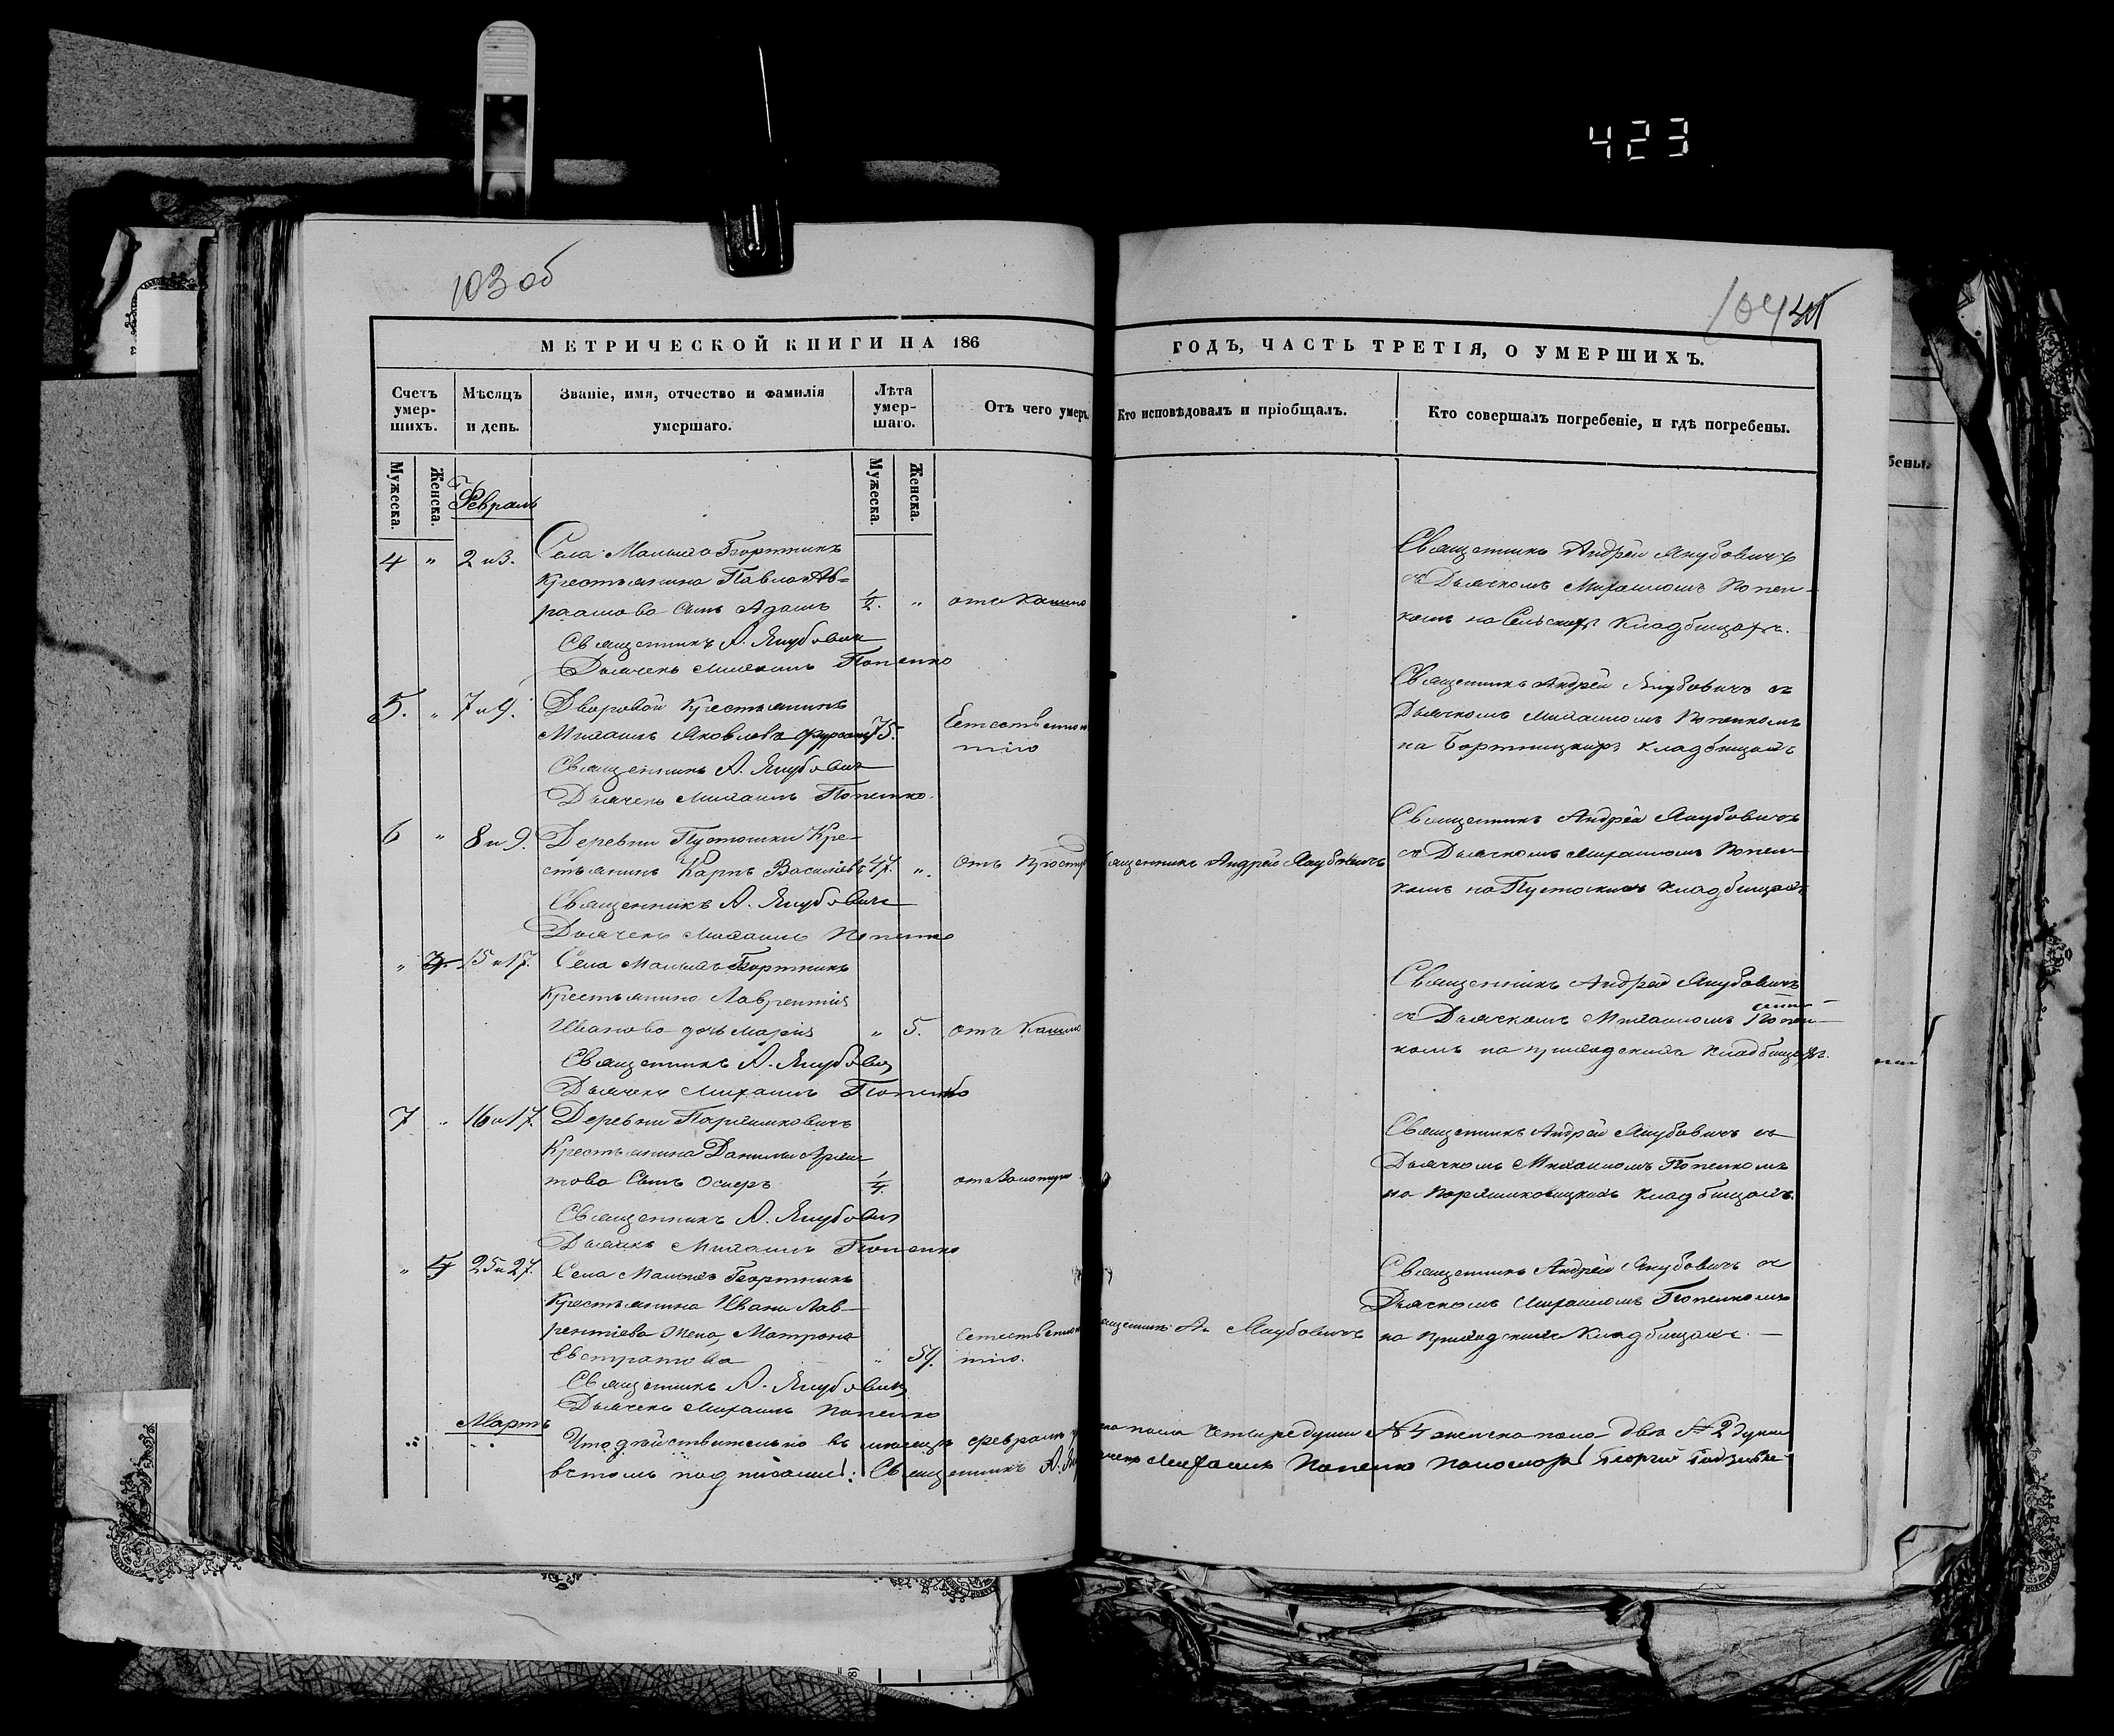 423
103 об
104
МЕТРИЧЕСКОЙ КНИГИ НА 186
ГОДЪ, ЧАСТЬ ТРЕТІЯ, О УМЕРШИХЪ.
Счетъ умер-шихъ.
Мѣсяцъ и день.
Званіе, имя, отчество и фамилія умершаго.
Лѣта умер-шаго.
Отъ чего умеръ
Кто исповѣдовалъ и пріобщалъ.
Кто совершалъ погребеніе, и гдѣ погребены.
Мужеска.
Женска.
Мужеска.
Женска.
Февраль
4 " 2 и 3.
Села Малыхъ Бортникъ
Крестьянина Павла Ав=
раамова сынъ Адамъ 1/2. " отъ кашлю
Священникъ А. Якубович
Дьячекъ Михаилъ Попенко
Священникъ Андрей Якубовичъ
съ Дьячкомъ Михаиломъ Попен-
комъ на Сельскихъ Кладбищахъ.
5. " 7 и 9.
Дворовой Крестьянинъ
Михаилъ Яковлевъ 75. Естественно
тію
Священникъ А. Якубович
Дьячекъ Михаилъ Попенко.
Священникъ Андрей Якубовичъ съ
Дьячкомъ Михаиломъ Попенкомъ
на Бортницкихъ кладбищахъ
6 " 8 и 9.
Деревни Пустошки Кре-
стьянинъ Карпъ Васильевъ 47. ". Отъ простуд
ященникъ Андрей Якубовичъ
Священникъ А. Якубович
Дьячекъ Михаилъ Попенко
Священникъ Андрей Якубовичъ
съ Дьячкомъ Михаиломъ Попен-
комъ на кладбищахъ
" 3. 15 и 17.
Села Малыхъ Бортникъ
Крестьянина Лаврентія
Иванова дочь Марія " 5. отъ Кашлю
Священникъ А. Якубович
Дьячекъ Михаилъ Попенко
Священникъ Андрей Якубовичъ
съ Дьячкомъ Михаиломъ Попен-
комъ на приходскихъ кладбищахъ.
7 " 16 и 17.
Деревни
Крестьянина Данилы
това Сынъ 1/4.
Священникъ А. Якубович
Михаилъ Попенко
Священникъ Андрей Якубовичъ съ
Дьячкомъ Михаиломъ Попенкомъ
на кладбищахъ.
" 4 25 и 27.
Села Малыхъ Бортникъ
Крестьянина Ивана Лав-
рентіева жена, Матрона
Евстратова " 59. Естественно
тію.
ященникъ А. Якубовичъ
Священникъ А. Якубович
Дьячекъ Михаилъ Попенко
Священникъ Андрей Якубовичъ съ
Дьячкомъ Михаиломъ Попенкомъ
на приходскихъ Кладбищахъ.
Мартъ
Что дѣйствительно въ мѣсяцѣ февралѣ
ска пола четыре души № 4 женска пола двѣ № 2 души
въ томъ подписаніе: Священникъ А. Як
ячекъ Михаилъ Попенко Пономарь Георгій